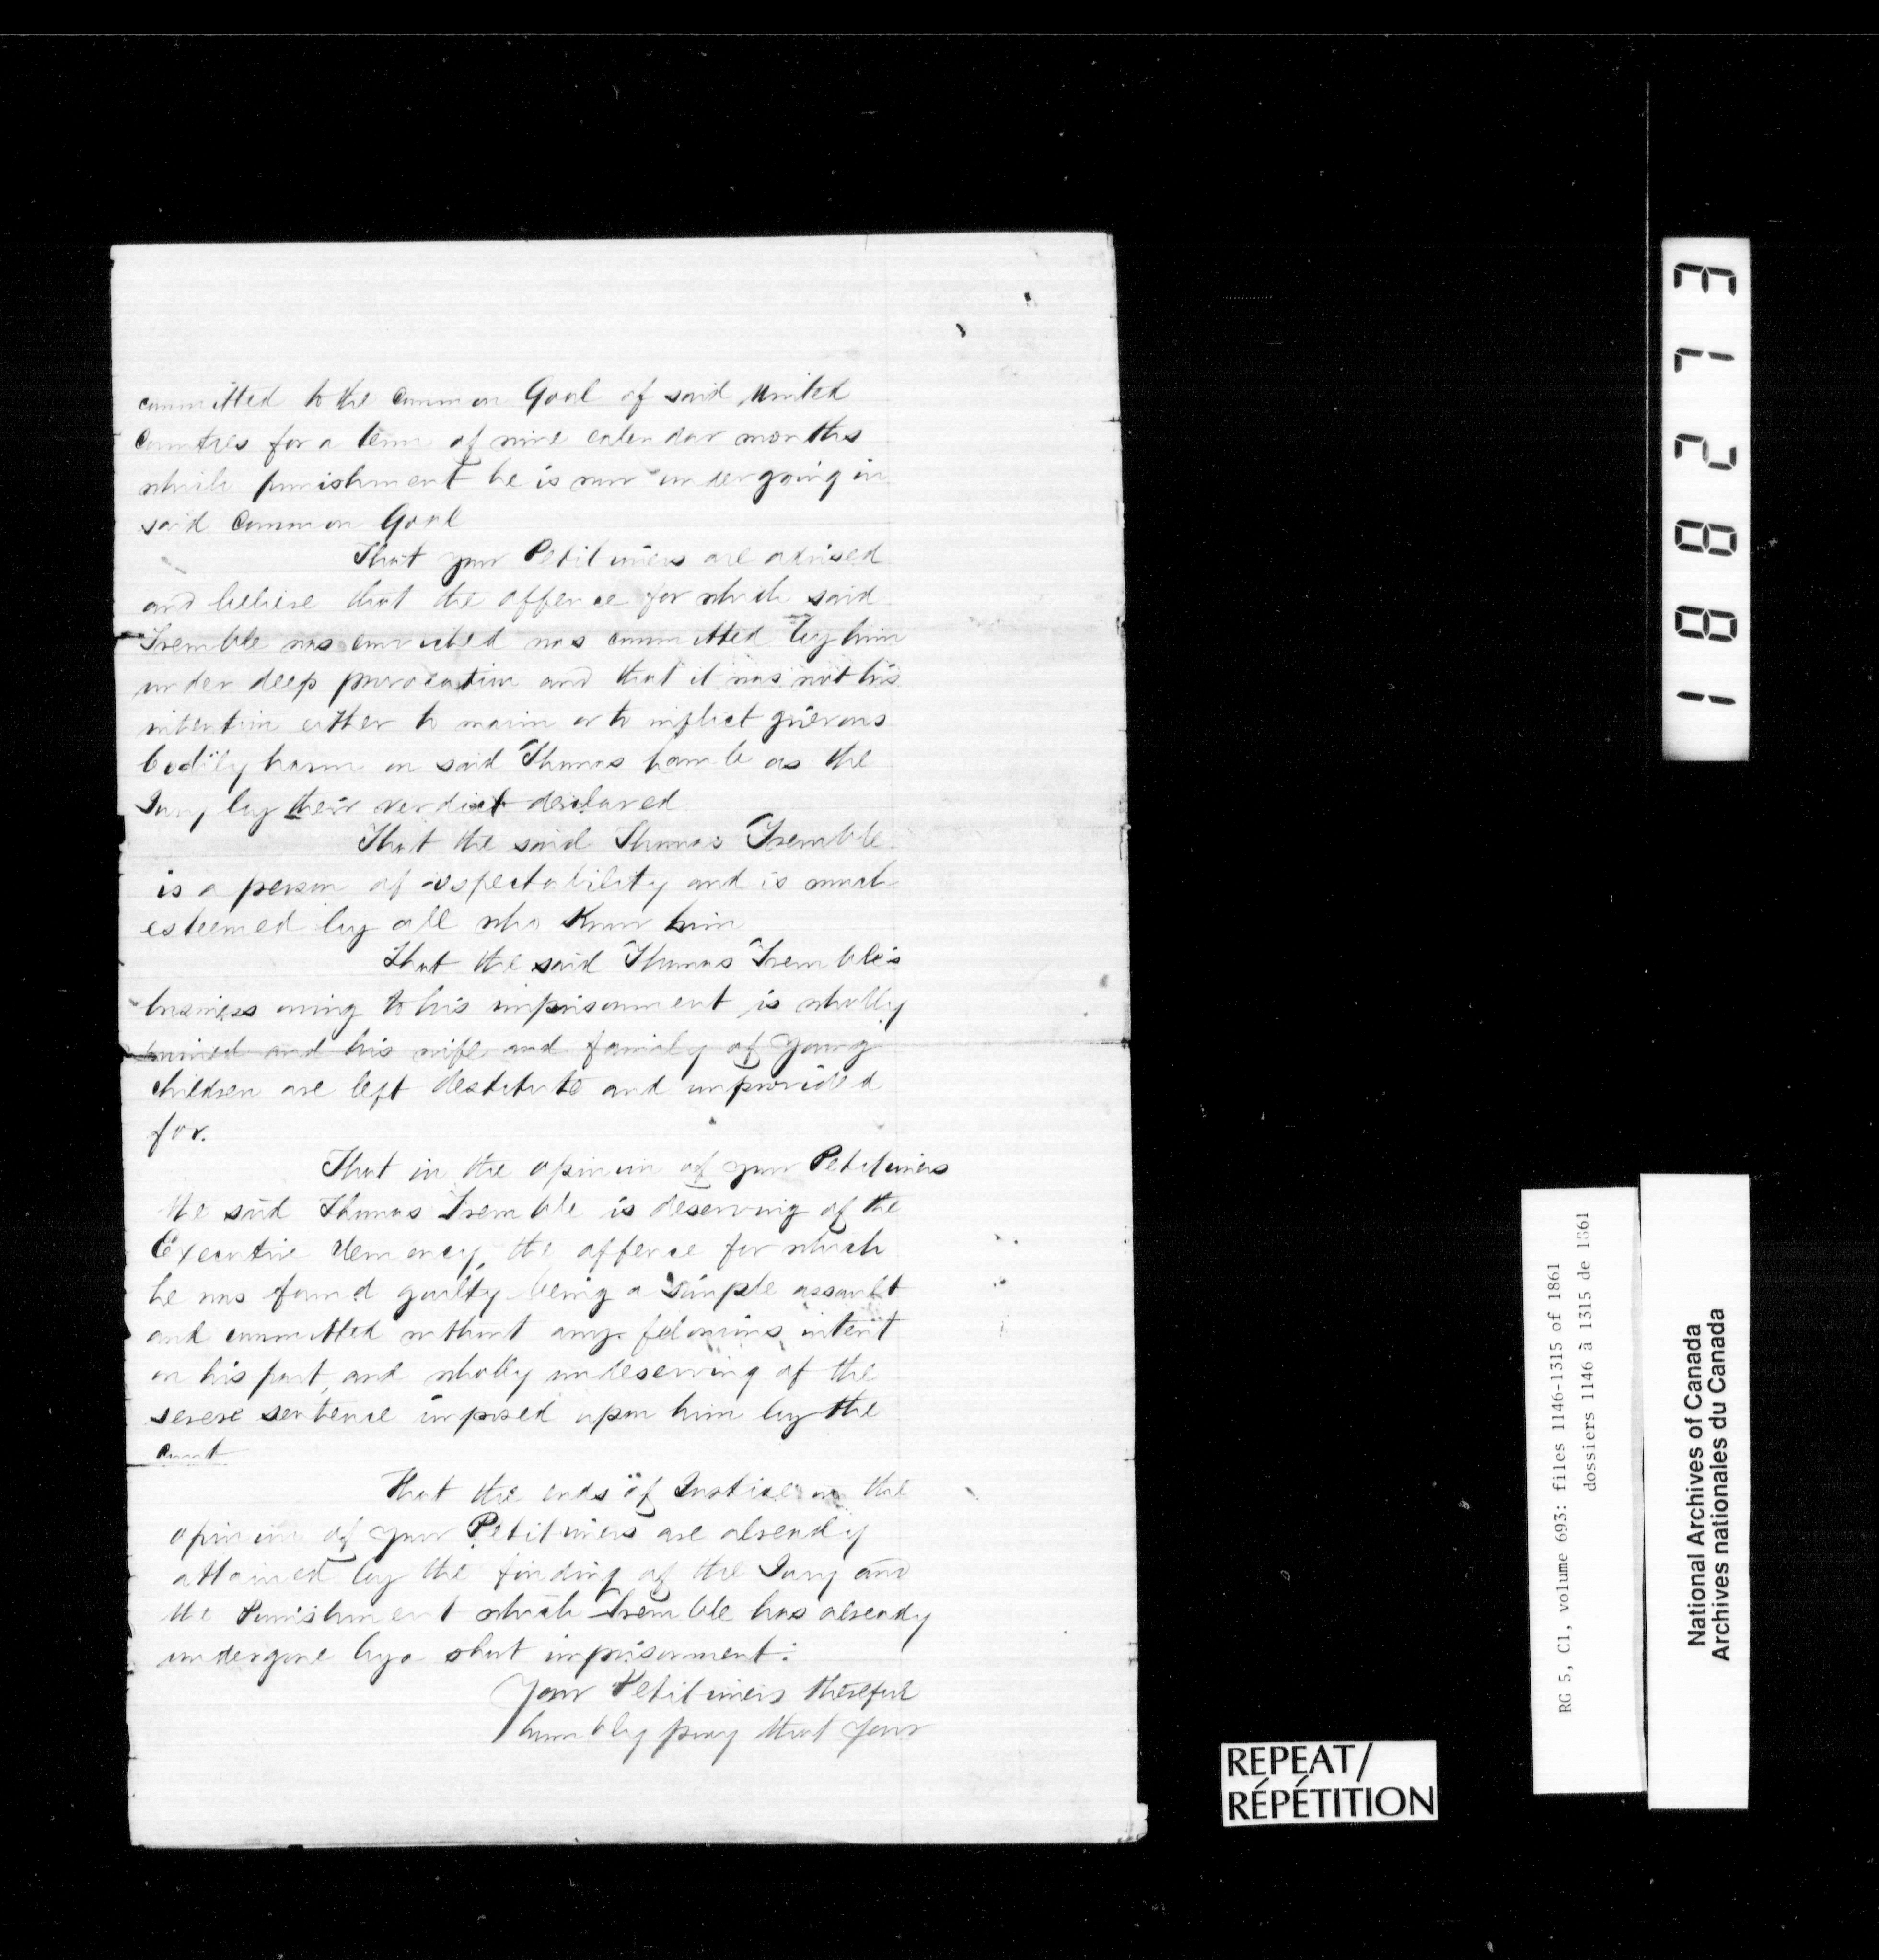 committed to the Common Goal of said United
Counties for a term of nine calendar months
which punishment he is now undergoing in
said Common Goal
That your Petitioners are advised
and believe that the offence for which said
Tremble was convicted was committed by him
under deep provocation and that it was not his
intention either to maim or to inflict grievous
bodily harm on said Thomas as the
Jury by their verdict declared
That the said Thomas Tremble
is a person of respectability and is much
esteemed by all who know him
That the said Thomas Tremble's
business owing to his imprisonment is wholly
ruined and his wife and family of young
children are left destitute and unprovided
for.
That in the opinion of your Petitioners
the said Thomas Tremble is deserving of the
Executive clemency, the offence for which
he was found guilty being a simple assault
and committed without any felonious intent
on his part, and wholly undeserving of the
severe sentence imposed upon him by the
court
That the ends of Justice in the
opinion of your Petitioners are already
attained by the finding of the Jury and
the Punishment which Tremble has already
undergone by a short imprisonment:
Your Petitioners therefore
humbly pray that your
188273
RG 5, C1, volume 693: files 1146-1315 of 1861
dossiers 1146 à 1315 de 1861
National Archives of Canada
Archives nationales du Canada
REPEAT/
RÉPÉTITION